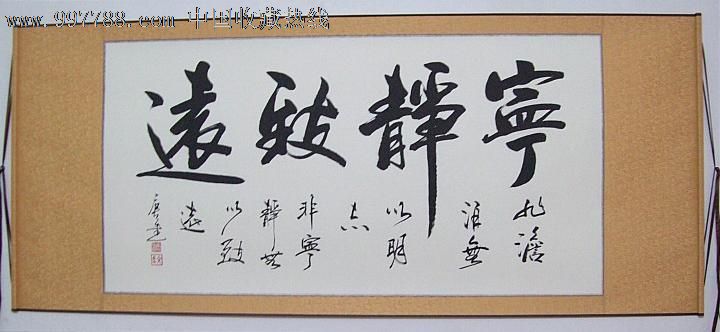 www.997788.com 中国收藏热线
寧靜致遠
非澹
泊無
以明
志
非寧
靜無
以致
遠